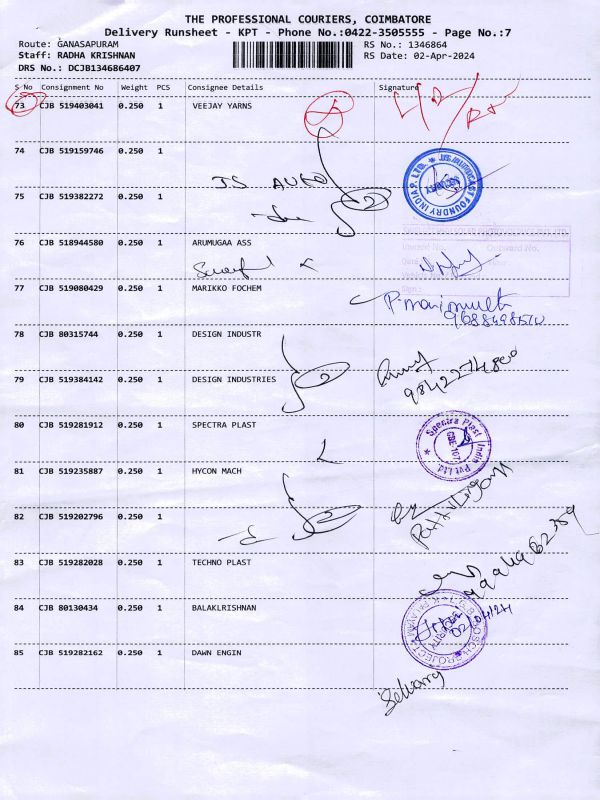 THE PROFESSIONAL COURIERS, COIMBATORE
Delivery Runsheet - KPT - Phone No.:0422-3505555 - Page No.:7
Route: GANASAPURAM
RS No.: 1346864
Staff: RADHA KRISHNAN
RS Date: 02-Apr-2024
DRS No.: DCJB134686407
S No Consignment No Weight PCS Consignee Details Signature
73 CJB 519403041 0.250 1 VEEJAY YARNS
74 CJB 519159746 0.250 1
JS AUTO
75 CJB 519382272 0.250 1
76 CJB 518944580 0.250 1 ARUMUGAA ASS
Inward No. Outward No.
77 CJB 519080429 0.250 1 MARIKKO FOCHEM
P. marimuth
78 CJB 80315744 0.250 1 DESIGN INDUSTR
79 CJB 519384142 0.250 1 DESIGN INDUSTRIES
80 CJB 519281912 0.250 1 SPECTRA PLAST
Spectra Plast India Pvt Ltd.
81 CJB 519235887 0.250 1 HYCON MACH
82 CJB 519202796 0.250 1
83 CJB 519282028 0.250 1 TECHNO PLAST
84 CJB 80130434 0.250 1 BALAKLRISHNAN
02/04/24
85 CJB 519282162 0.250 1 DAWN ENGIN